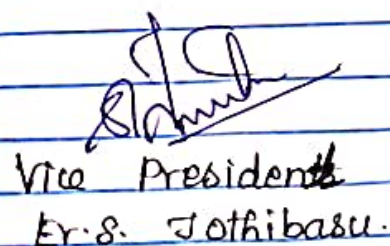 Vice President
Er. S. Jothibasu